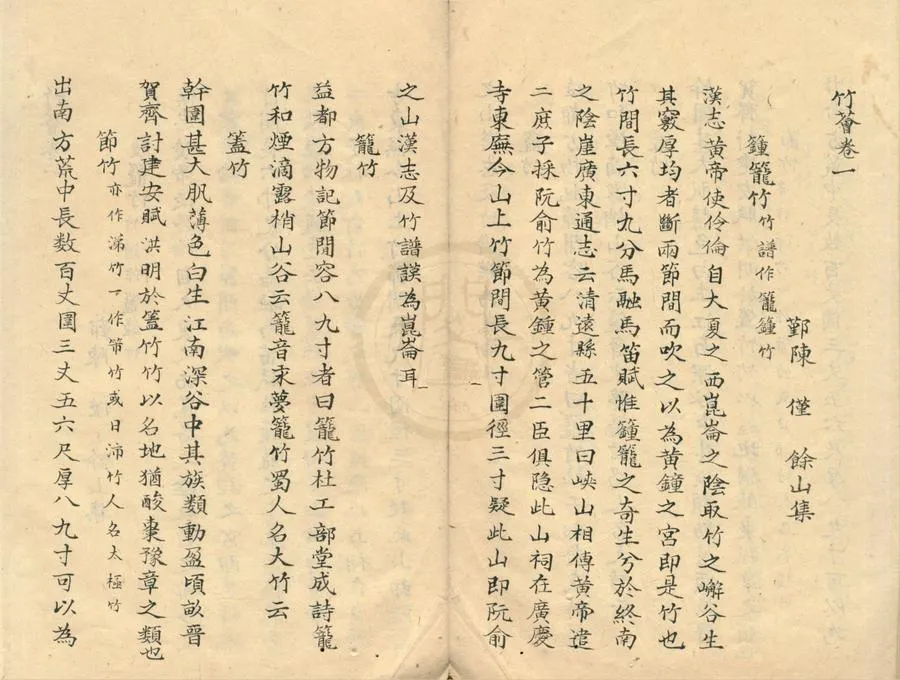 竹薈卷一
鄞陳 僅 餘山集
鍾籠竹竹譜作籠鍾竹
漢志黃帝使伶倫自大夏之西崑崙之陰取竹之嶰谷生
其竅厚均者斷兩節間而吹之以為黃鐘之宮即是竹也
竹間長六寸九分馬融馬笛賦惟籦籠之奇生兮於終南
之陰崖廣東通志云清遠縣五十里曰峽山相傳黃帝遣
二庶子採阮俞竹為黃鍾之管二臣俱隐此山祠在廣慶
寺東廡今山上竹節間長九寸圍徑三寸疑此山即阮俞
之山漢志及竹譜誤為崑崙耳
籠竹
益都方物記節閒容八九寸者曰籠竹杜工部堂成詩籠
竹和煙滴露梢山谷云籠音末夢籠竹蜀人名大竹云
蓋竹
幹圍甚大肌薄色白生江南深谷中其族類動盈頃畝晉
賀齊討建安賦洪明於蓋竹竹以名地猶酸棗豫章之類也
節竹亦作涕竹一作笫竹或曰沛竹人名太極竹
出南方荒中長数百丈圍三丈五六尺厚八九寸可以為